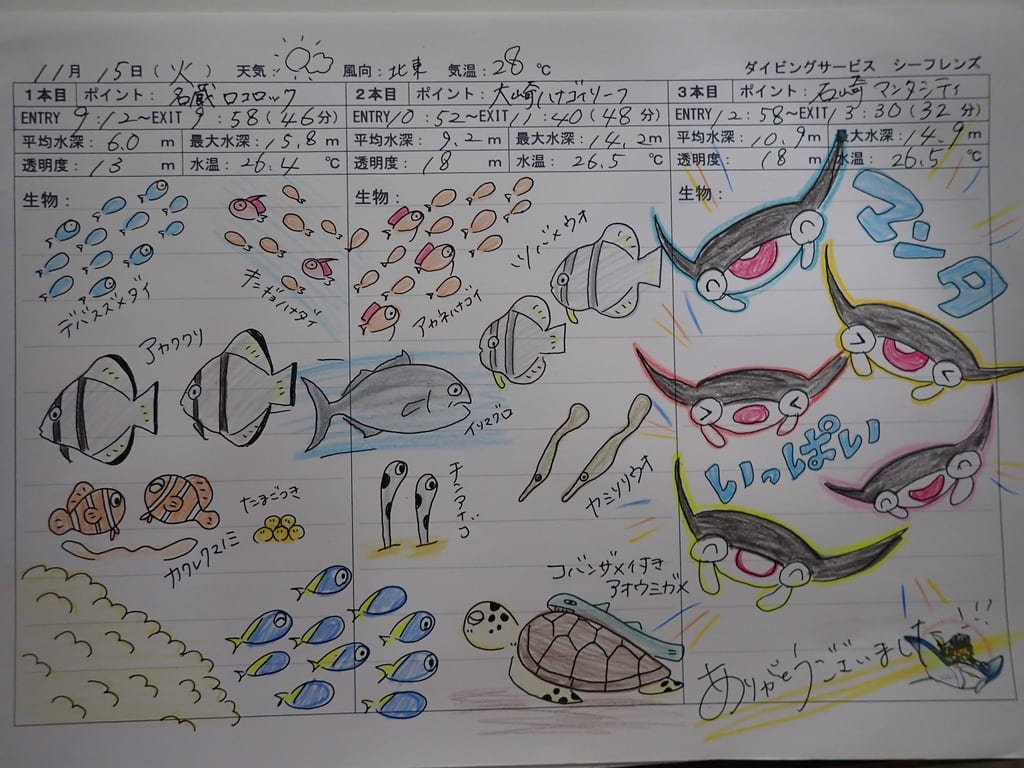 11月 15日(火) 天気: 風向: 北東 気温: 28 ℃ ダイビングサービス シーフレンズ
1本目 ポイント: 名蔵ロコロック 2本目 ポイント: 大崎ハナゴイリーフ 3本目 ポイント: 石崎マンタシティ
ENTRY 9:12～EXIT 9:58(46分) ENTRY 10:52～EXIT 11:40(48分) ENTRY 12:58～EXIT 13:30(32分)
平均水深: 6.0 m 最大水深: 15.8 m 平均水深: 9.2 m 最大水深: 14.2 m 平均水深: 10.9 m 最大水深: 14.9 m
透明度: 13 m 水温: 26.4 ℃ 透明度: 18 m 水温: 26.5 ℃ 透明度: 18 m 水温: 26.5 ℃
生物: 生物: 生物:
デバスズメダイ
キンギョハナダイ
アカククリ
カクレクマノミ
たまごつき
アカネハナゴイ
ツバメウオ
イソマグロ
チンアナゴ
ヘコアユ
コバンザメ付き
アオウミガメ
マンタ
いっぱい
ありがとうございました!!!